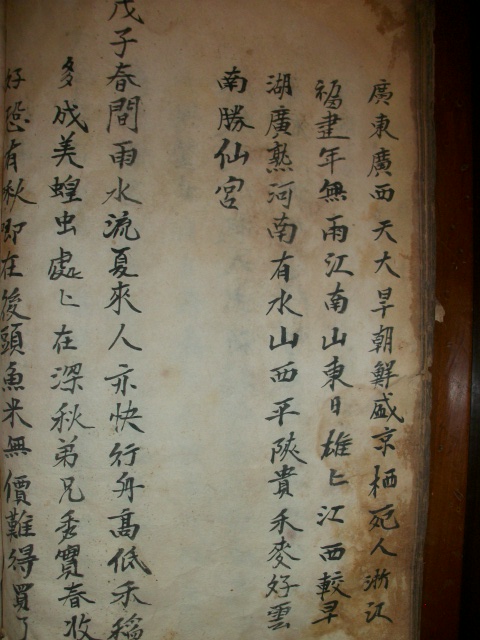 廣東廣西天大旱朝鮮盛京栖死人浙江
福建年無雨江南山東日雄匕江西較早
湖廣熟河南有水山西平陝貴禾麥好雲
南勝仙宮
戊子春間雨水流夏來人亦快行舟高低禾稻
多成美蝗虫處匕在深秋弟兄秀實春收
好恐有秋即在後頭魚米無價難得買了